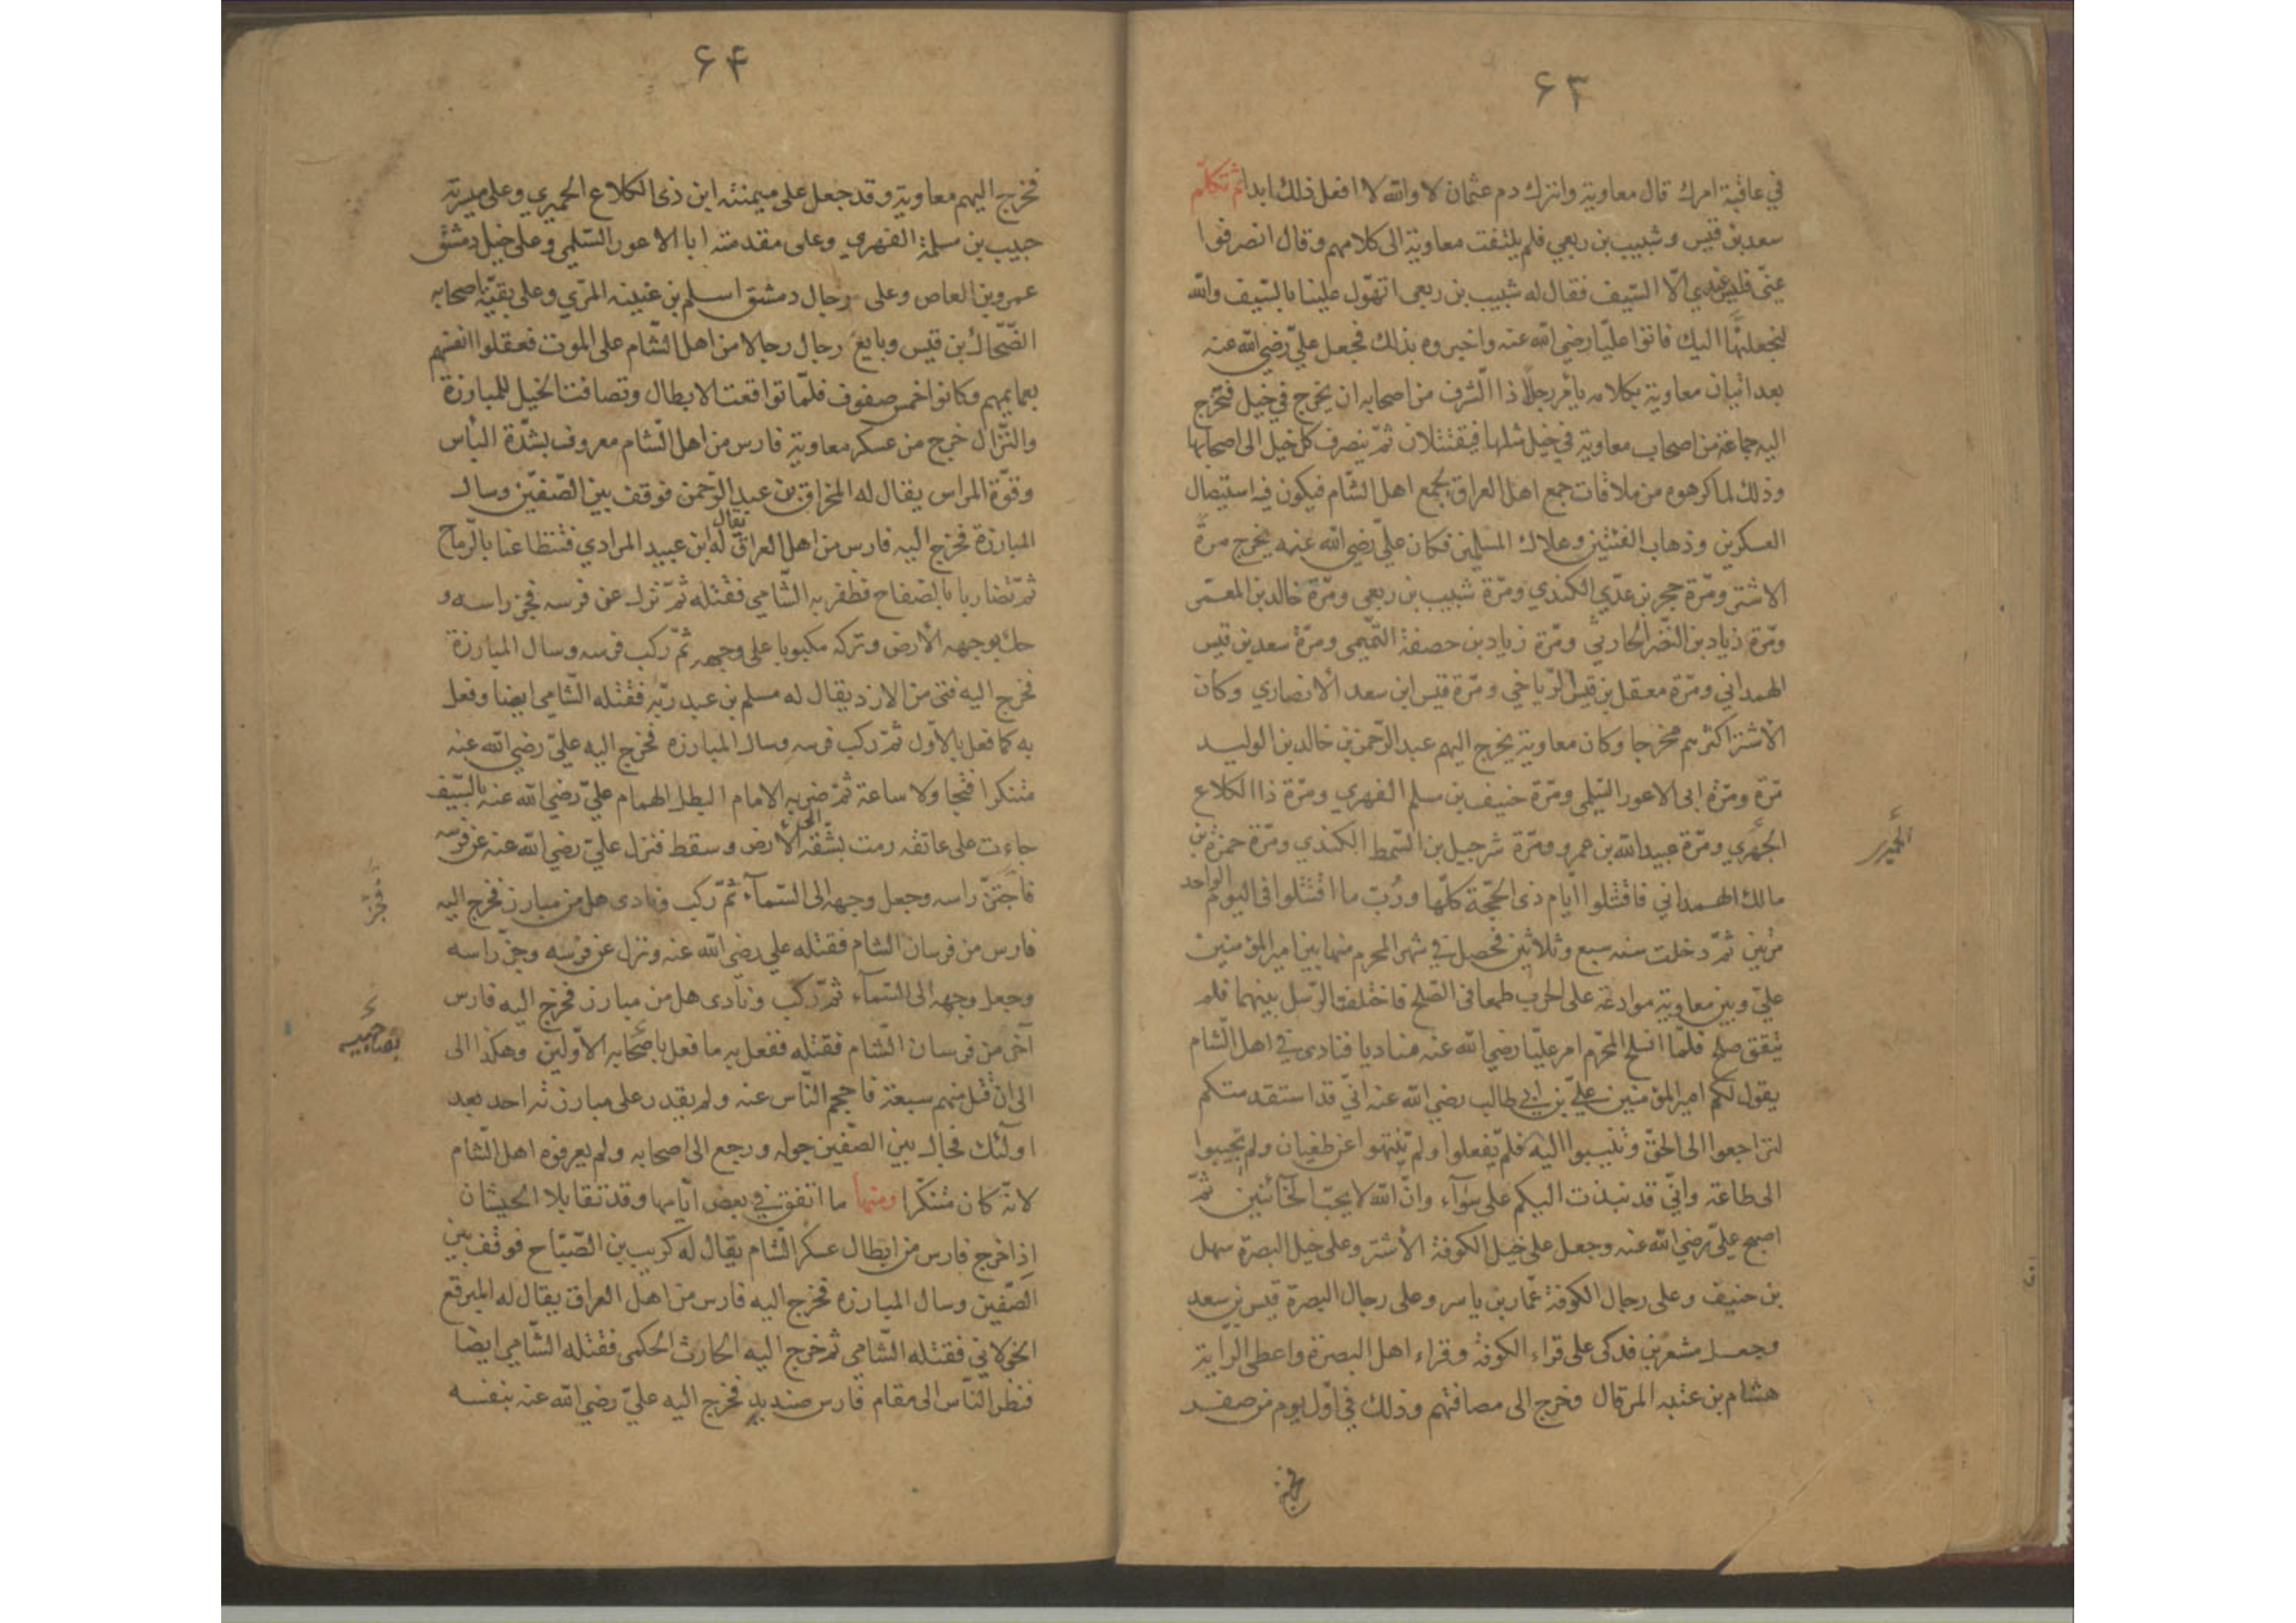 ۶۳
في عاقبة امرك قال معاوية واترك دم عثمان لا والله لا افعل ذلك ابدا ثم تكلّم
سعد بن قيس وشبيب بن ربعي فلم يلتفت معاوية الى كلامهم وقال انصرفوا
عنّي فليس عندي الّا السّيف فقال له شبيب بن ربعي اتهوّل علينا بالسّيف والله
لنجعلنّها اليك فاتوا عليّا رضي الله عنه واخبروه بذلك فجعل عليّ رضي الله عنه
بعد اتيان معاوية بكلامه يأمر رجلاً ذا الشرف من اصحابه ان يخرج في خيل فتخرج
اليه جماعة من اصحاب معاوية في خيل مثلها فيقتتلان ثمّ ينصرف كل خيل الى اصحابها
وذلك لما كرهوه من ملاقات جمع اهل العراق بجمع اهل الشام فيكون فيه استيصال
العسكرين وذهاب الفئتين وهلاك المسلمين فكان عليّ رضي الله عنه يخرج مرة
الاشتر ومرّة حجر بن عدّي الكندي ومرّة شبيب بن ربعي ومرّة خالد بن المعمّر
ومرّة زياد بن النّضر الحارثي ومرّة زياد بن حصفة التّميمي ومرّة سعد بن قيس
الهمداني ومرّة معقل بن قيس الرّياحي ومرّة قيس ابن سعد الانصاري وكان
الاشتر اكثرهم مخرجا وكان معاوية يخرج اليهم عبد الرّحمن بن خالد بن الوليد
مرّة ومرّة ابى الاعور السّلمي ومرّة حنيف بن سلم الفهري ومرّة ذا الكلاع
الجهري ومرّة عبيد الله بن عمرو ومرّة شرجيل بن السّمط الكندي ومرّة حمزة بن
الحميري
مالك الهمداني فاقتتلوا ايّام ذى الحجّة كلّها ورُبّ ما اقتتلوا فى اليوم الواحد
مرتين ثمّ دخلت سنه سبع وثلاثين فحصل في شهر المحرم منها بين امير المؤمنين
عليّ وبين معاوية موادعة على الحرب طمعا فى الصّلح فاختلفت الرّسل بينهما فلم
يتفق صلح فلمّا انسلخ المحرّم امر عليّا رضي الله عنه مناديا فنادى في اهل الشّام
يقول لكم امير المؤمنين عليّ بن ابي طالب رضي الله عنه انّي قد استقدمتكم
لتراجعوا الى الحقّ وتنيبوا اليه فلم يفعلوا ولم ينتهوا عن طغيان ولم تجيبوا
الى طاعة وانّي قد نبذت اليكم على سوآء وانّ الله لا يحبّ الخآئنين ثمّ
اصبح عليّ رضي الله عنه وجعل على خيل الكوفة الأشتر وعلى خيل البصرة سهل
بن حنيف وعلى رجال الكوفة عمّار بن ياسر وعلى رجال البصرة قيس بن سعد
وجعل مشعر بن فدكى على قراء الكوفة وقراء اهل البصرة واعطى الرّاية
هشام بن عتبه المرقال وخرج الى مصافتهم وذلك في اوّل يوم من صفر
فخرج
۶۴
فخرج اليهم معاوية وقد جعل على ميمنته ابن ذى الكلاع الحميري وعلى ميسرته
حبيب بن سلمة الفهري وعلى مقدمته ابا الاعور السّلمي وعلى خيل دمشق
عمرو بن العاص وعلى رجال دمشق اسلم بن عيينه المرّي وعلى بقيّة اصحابه
الضّحاك بن قيس وبايع رجال رجالا من اهل الشّام على الموت فعقلوا انفسهم
بعمايمهم وكانوا خمس صفوف فلمّا تواقعت الابطال وتصافت الخيل للمبارزة
والنّزال خرج من عسكر معاوية فارس من اهل الشّام معروف بشدّة البأس
وقوّة المراس يقال له المخراق بن عبد الرّحمن فوقف بين الصّفين وسال
المبارزة فخرج اليه فارس من اهل العراق يقال له ابن عبيد المرادي فتطاعنا بالرّماح
ثمّ تضاربا بالصفاح فظفر به الشّامي فقتله ثمّ نزل عن فرسه فجز راسه و
حك بوجهه الأرض وتركه مكبوبا على وجهه ثمّ ركب فرسه وسال المبارزة
فخرج اليه فتى من الازد يقال له مسلم بن عبد ربّه فقتله الشّامي ايضا وفعل
به كما فعل بالأول ثمّ ركب فرسه وسال المبارزه فخرج اليه عليّ رضي الله عنه
متنكرا فتجاولا ساعة ثمّ ضربه الامام البطل الهمام عليّ رضي الله عنه بالسّيف
جاءت على عاتقه رمت بشّقه الى الارض وسقط فنزل عليّ رضي الله عنه عن فرسه
فاجتزّ راسه وجعل وجهه الى السّمآء ثمّ ركب ونادى هل من مبارز فخرج اليه
فجز
فارس من فرسان الشام فقتله علي رضي الله عنه ونزل عن فرسه وجز راسه
وجعل وجهه الى السّمآء ثمّ ركب ونادى هل من مبارز فخرج اليه فارس
آخر من فرسان الشّام فقتله ففعل به ما فعل باصحابه الأوّلين وهكذا الى
بصاحبيه
الى ان قتل منهم سبعة فاحجم النّاس عنه ولم يقدر على مبارزته احد بعد
اولئك فجال بين الصّفين جوله ورجع الى اصحابه ولم يعرفوه اهل الشّام
لانّه كان متنكّرا ومنها ما اتفق في بعض ايّامها وقد تقابلا الجيشان
اذا خرج فارس من ابطال عسكر الشّام يقال له كريب بن الصّبّاح فوقف بين
الصّفين وسال المبارزه فخرج اليه فارس من اهل العراق يقال له المبرقع
الخولاني فقتله الشّامي ثم خرج اليه الحارث الحكمي فقتله الشّامي ايضا
فنظر النّاس الى مقام فارس صنديد فخرج اليه عليّ رضي الله عنه بنفسه